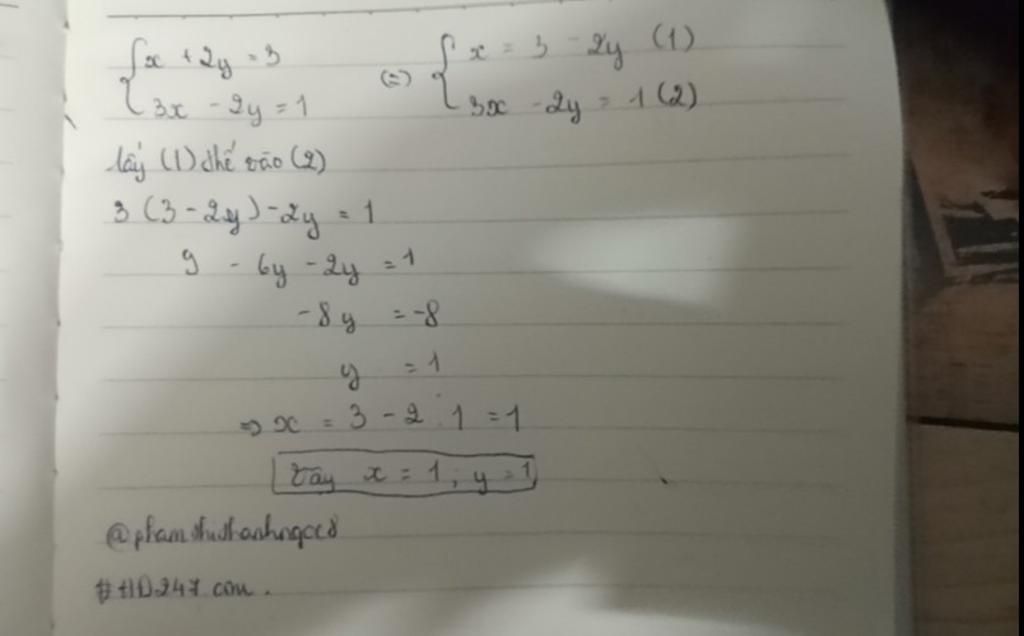 { x + 2y = 3 (=) { x = 3 - 2y (1)
{ 3x - 2y = 1 { 3x - 2y = 1 (2)
lấy (1) thế vào (2)
3 (3 - 2y) - 2y = 1
9 - 6y - 2y = 1
-8y = -8
y = 1
=> x = 3 - 2 . 1 = 1
Vây x = 1 ; y = 1
@phamthithanhngoc8